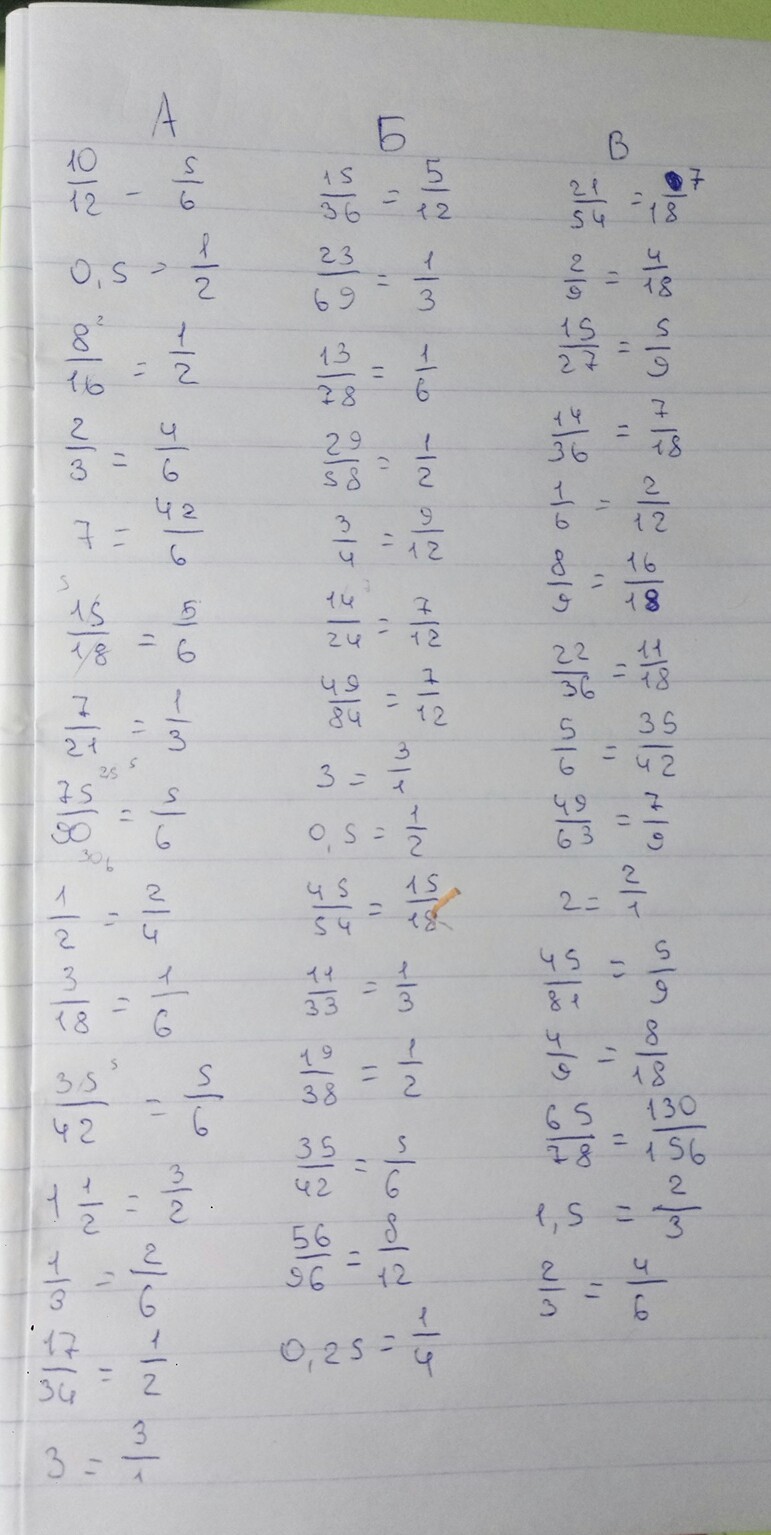 А
10/12 - 5/6
0,5 = 1/2
8²/16 = 1/2
2/3 = 4/6
7 = 42/6
5
15/18 = 5/6
7/21 = 1/3
25 5
75/90 = 5/6
30 6
1/2 = 2/4
3/18 = 1/6
35⁵/42 = 5/6
1 1/2 = 3/2
1/3 = 2/6
17/34 = 1/2
3 = 3/1
Б
15/36 = 5/12
23/69 = 1/3
13/78 = 1/6
29/58 = 1/2
3/4 = 9/12
14/24 = 7/12
49/84 = 7/12
3 = 3/1
0,5 = 1/2
45/54 = 15/18
11/33 = 1/3
19/38 = 1/2
35/42 = 5/6
56/96 = 8/12
0,25 = 1/4
В
21/54 = 7/18
2/9 = 4/18
15/27 = 5/9
14/36 = 7/18
1/6 = 2/12
8/9 = 16/18
22/36 = 11/18
5/6 = 35/42
49/63 = 7/9
2 = 2/1
45/81 = 5/9
4/9 = 8/18
65/78 = 130/156
1,5 = 2/3
2/3 = 4/6